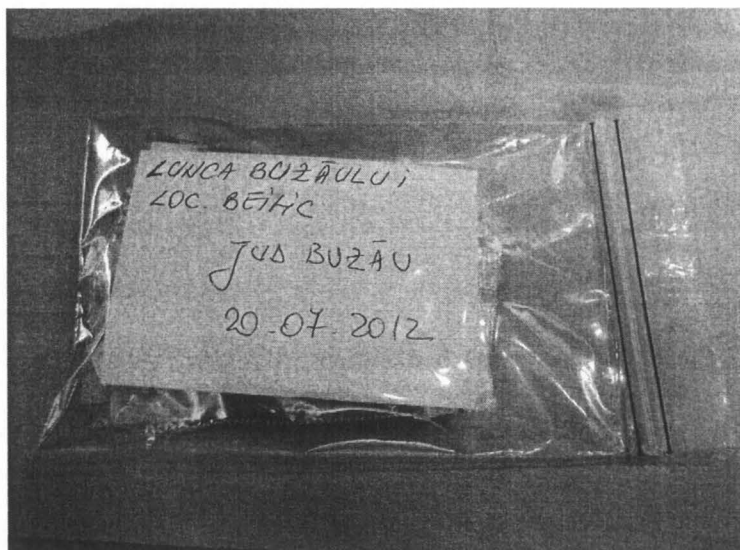 LUNCA BUZĂULUI
LOC. BEILIC
JUD BUZĂU
20-07-2012